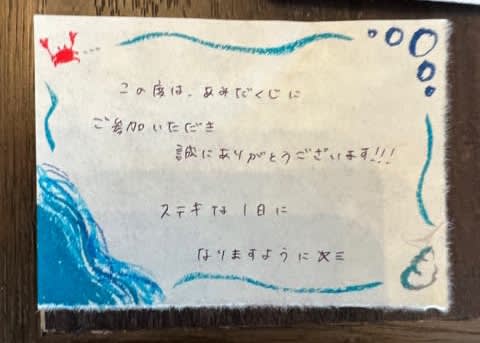 この度は、あみだくじに
ご参加いただき
誠にありがとうございます!!!
ステキな1日に
なりますように